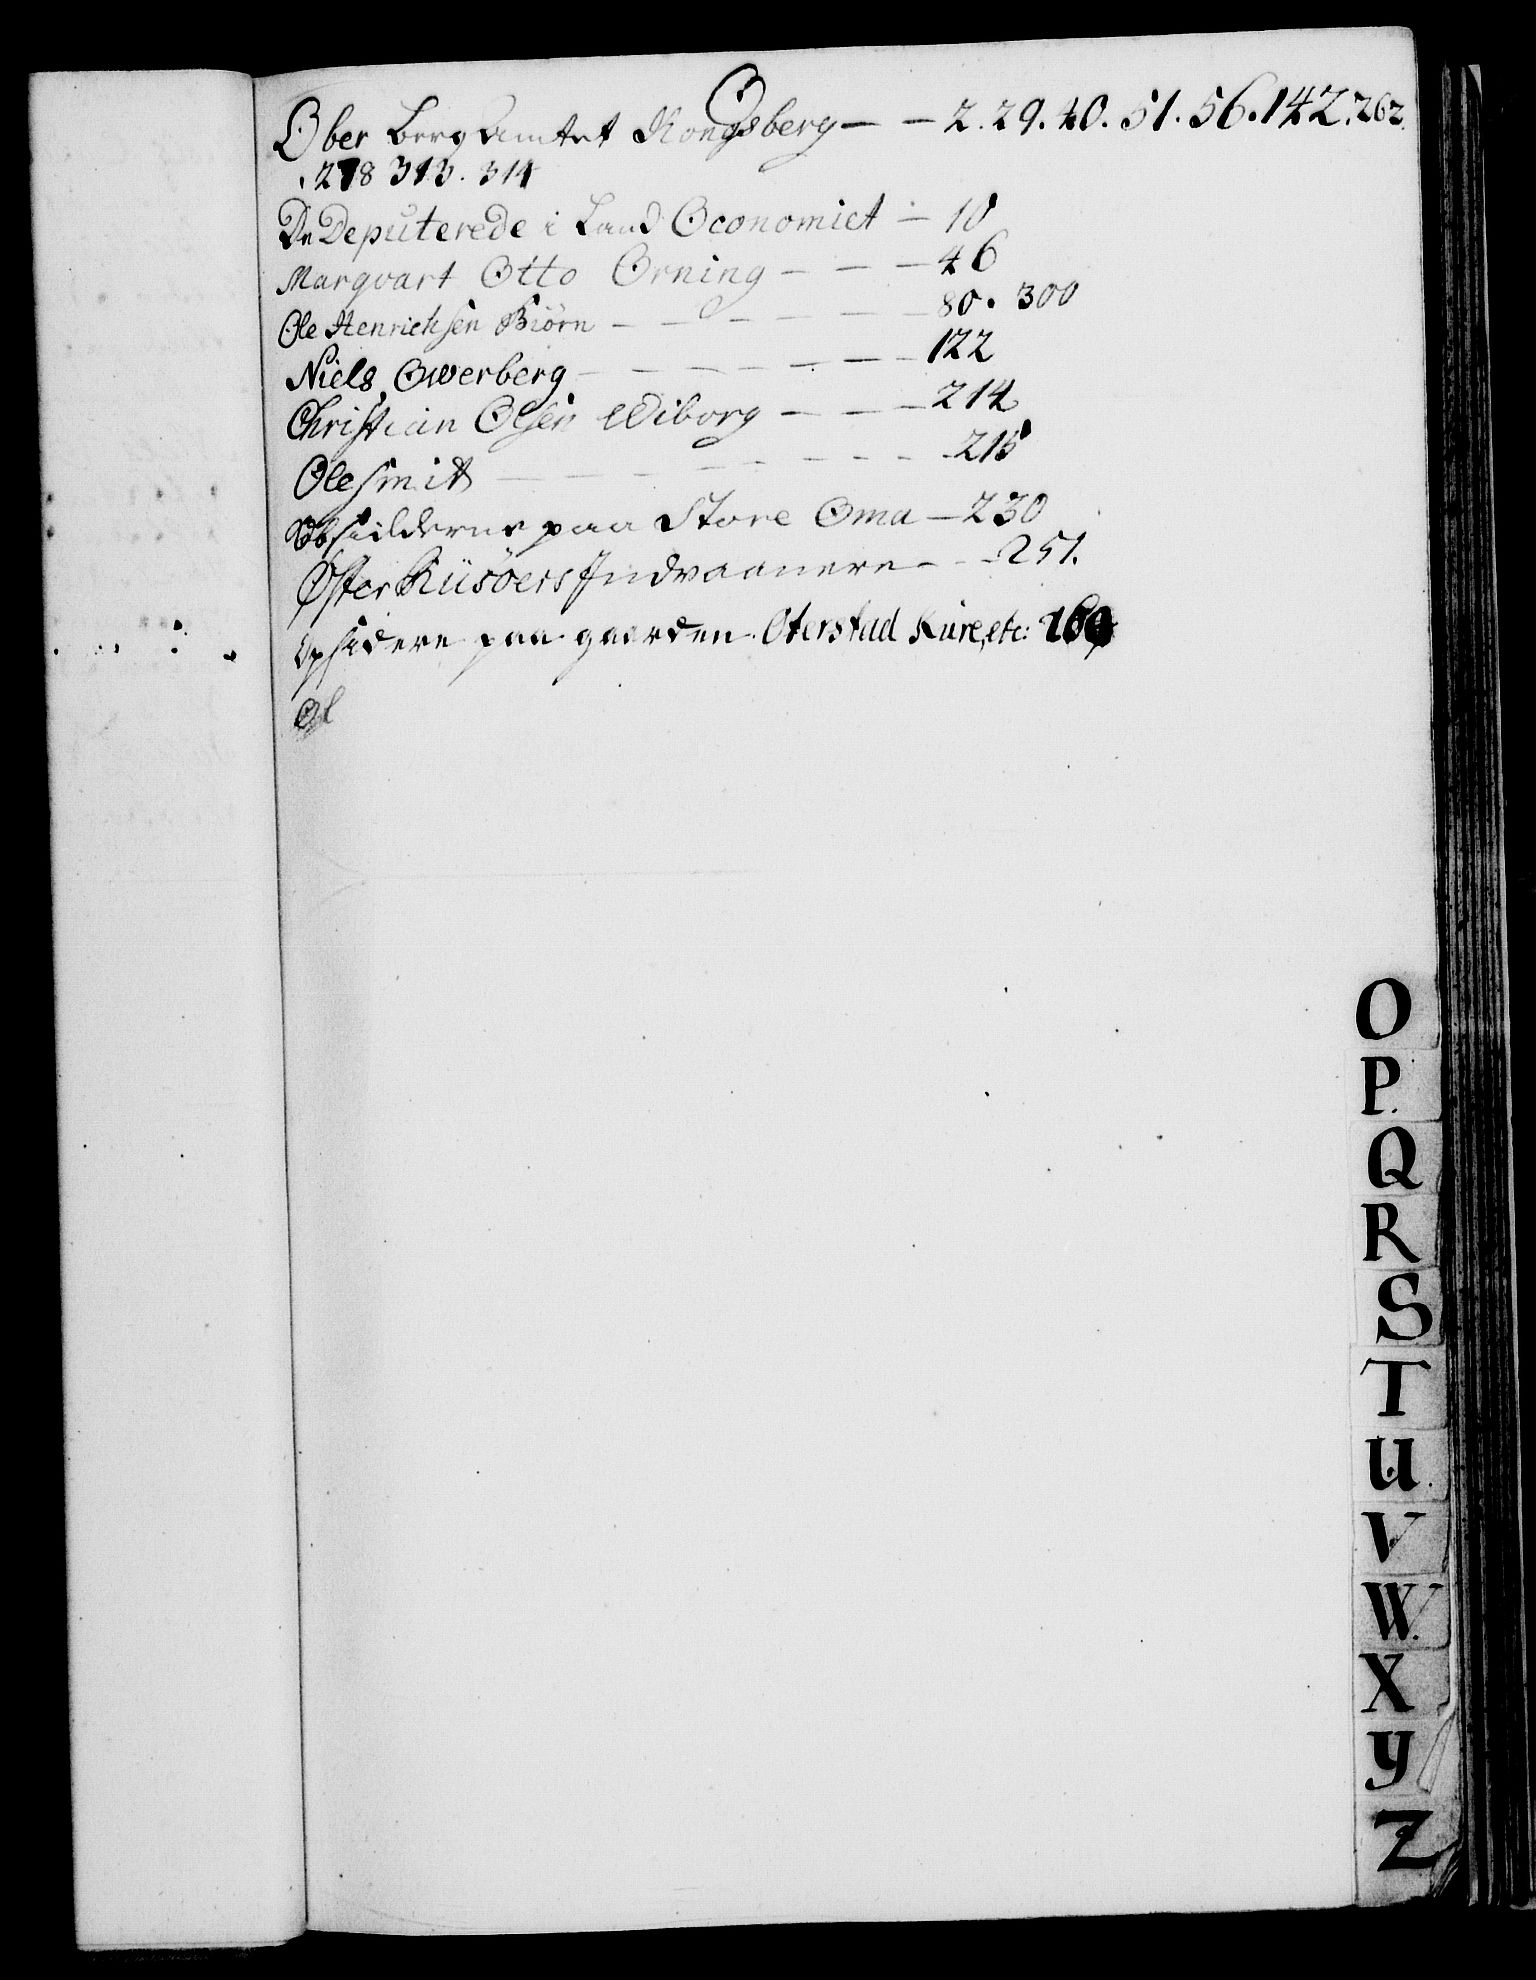 O
Ober Berg Amtet Kongsberg — — 2. 29. 40. 51. 56. 142. 262.
. 278 313. 314
De Deputerede i Land Oconomiet — 10
Marqvart Otto Orning — — — 46
Ole Henrichsen Biörn — — — — — — 80. 300
Niels Owerberg — — — — — — 122
Christian Olsen Wiborg — — — 214
Ole Smit — — — — — — — — 215
Obsidderne paa Store Oma — 230
Øster Riisöers Indvaanere — — 251.
Opsidere paa gaarden Oterstad Kure, etc:
O
P.
Q
R
S
T
U
V
W.
X
Y
Z